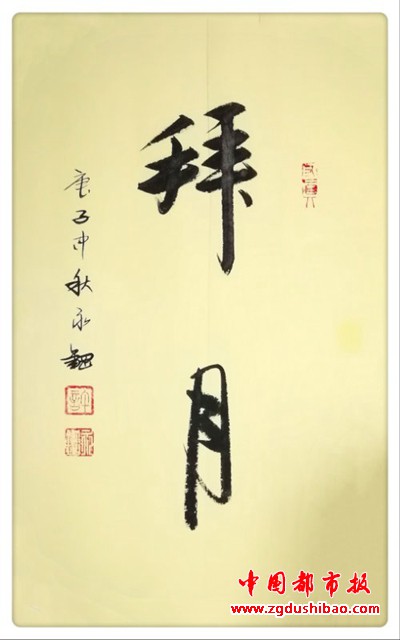 拜月
庚子中秋永
中国都市报
www.zgdushibao.com